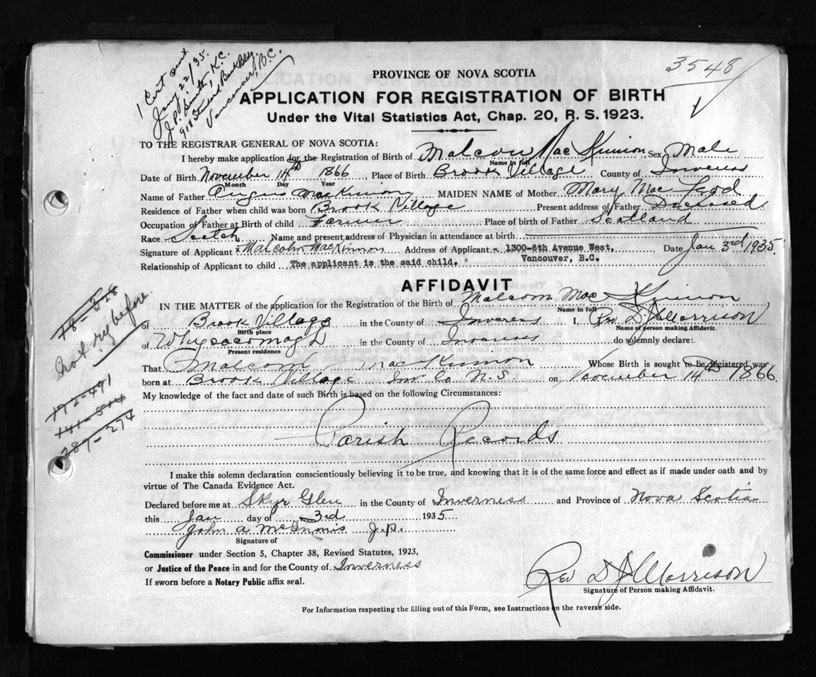 1 Cert sent
Jany 22/35.
J. P. K.C.
918 Bldg.
Vancouver, B.C.
3548
PROVINCE OF NOVA SCOTIA
APPLICATION FOR REGISTRATION OF BIRTH
Under the Vital Statistics Act, Chap. 20, R. S. 1923.
TO THE REGISTRAR GENERAL OF NOVA SCOTIA:
I hereby make application for the Registration of Birth of Malcom MacKinnon Sex Male
Name in full
Date of Birth November 14th 1866 Place of Birth Brook Village County of Inverness
Month Day Year
Name of Father MacKinnon MAIDEN NAME of Mother Mary Mac
Residence of Father when child was born Brook Village Present address of Father Deceased
Occupation of Father at Birth of child Farmer Place of birth of Father Scotland
Race Scotch Name and present address of Physician in attendance at birth
Signature of Applicant Malcolm MacKinnon Address of Applicant 1300-6th Avenue West, Date Jan 3rd 1935.
Vancouver, B.C.
Relationship of Applicant to child The applicant is the said child.
AFFIDAVIT
IN THE MATTER of the application for the Registration of the Birth of Malcom MacKinnon
Name in full
of Brook Village in the County of Inverness I, Rev D J Morrison
Birth place Name of Person making Affidavit.
of Whycocomagh in the County of Inverness do solemnly declare:
Present residence
That Malcom MacKinnon Whose Birth is sought to be registered was
born at Brook Village Inv Co N.S. on November 14th 1866
My knowledge of the fact and date of such Birth is based on the following Circumstances:
Parish Records
I make this solemn declaration conscientiously believing it to be true, and knowing that it is of the same force and effect as if made under oath and by
virtue of The Canada Evidence Act.
Declared before me at Skye Glen in the County of Inverness and Province of Nova Scotia
this Jan day of 3rd 1935
John A McInnis J.P.
Signature of
Commissioner under Section 5, Chapter 38, Revised Statutes, 1923,
or Justice of the Peace in and for the County of Inverness
If sworn before a Notary Public affix seal.
Rev D J Morrison
Signature of Person making Affidavit.
For Information respecting the filling out of this Form, see Instructions on the reverse side.
Not reg before.
172-491
287-274